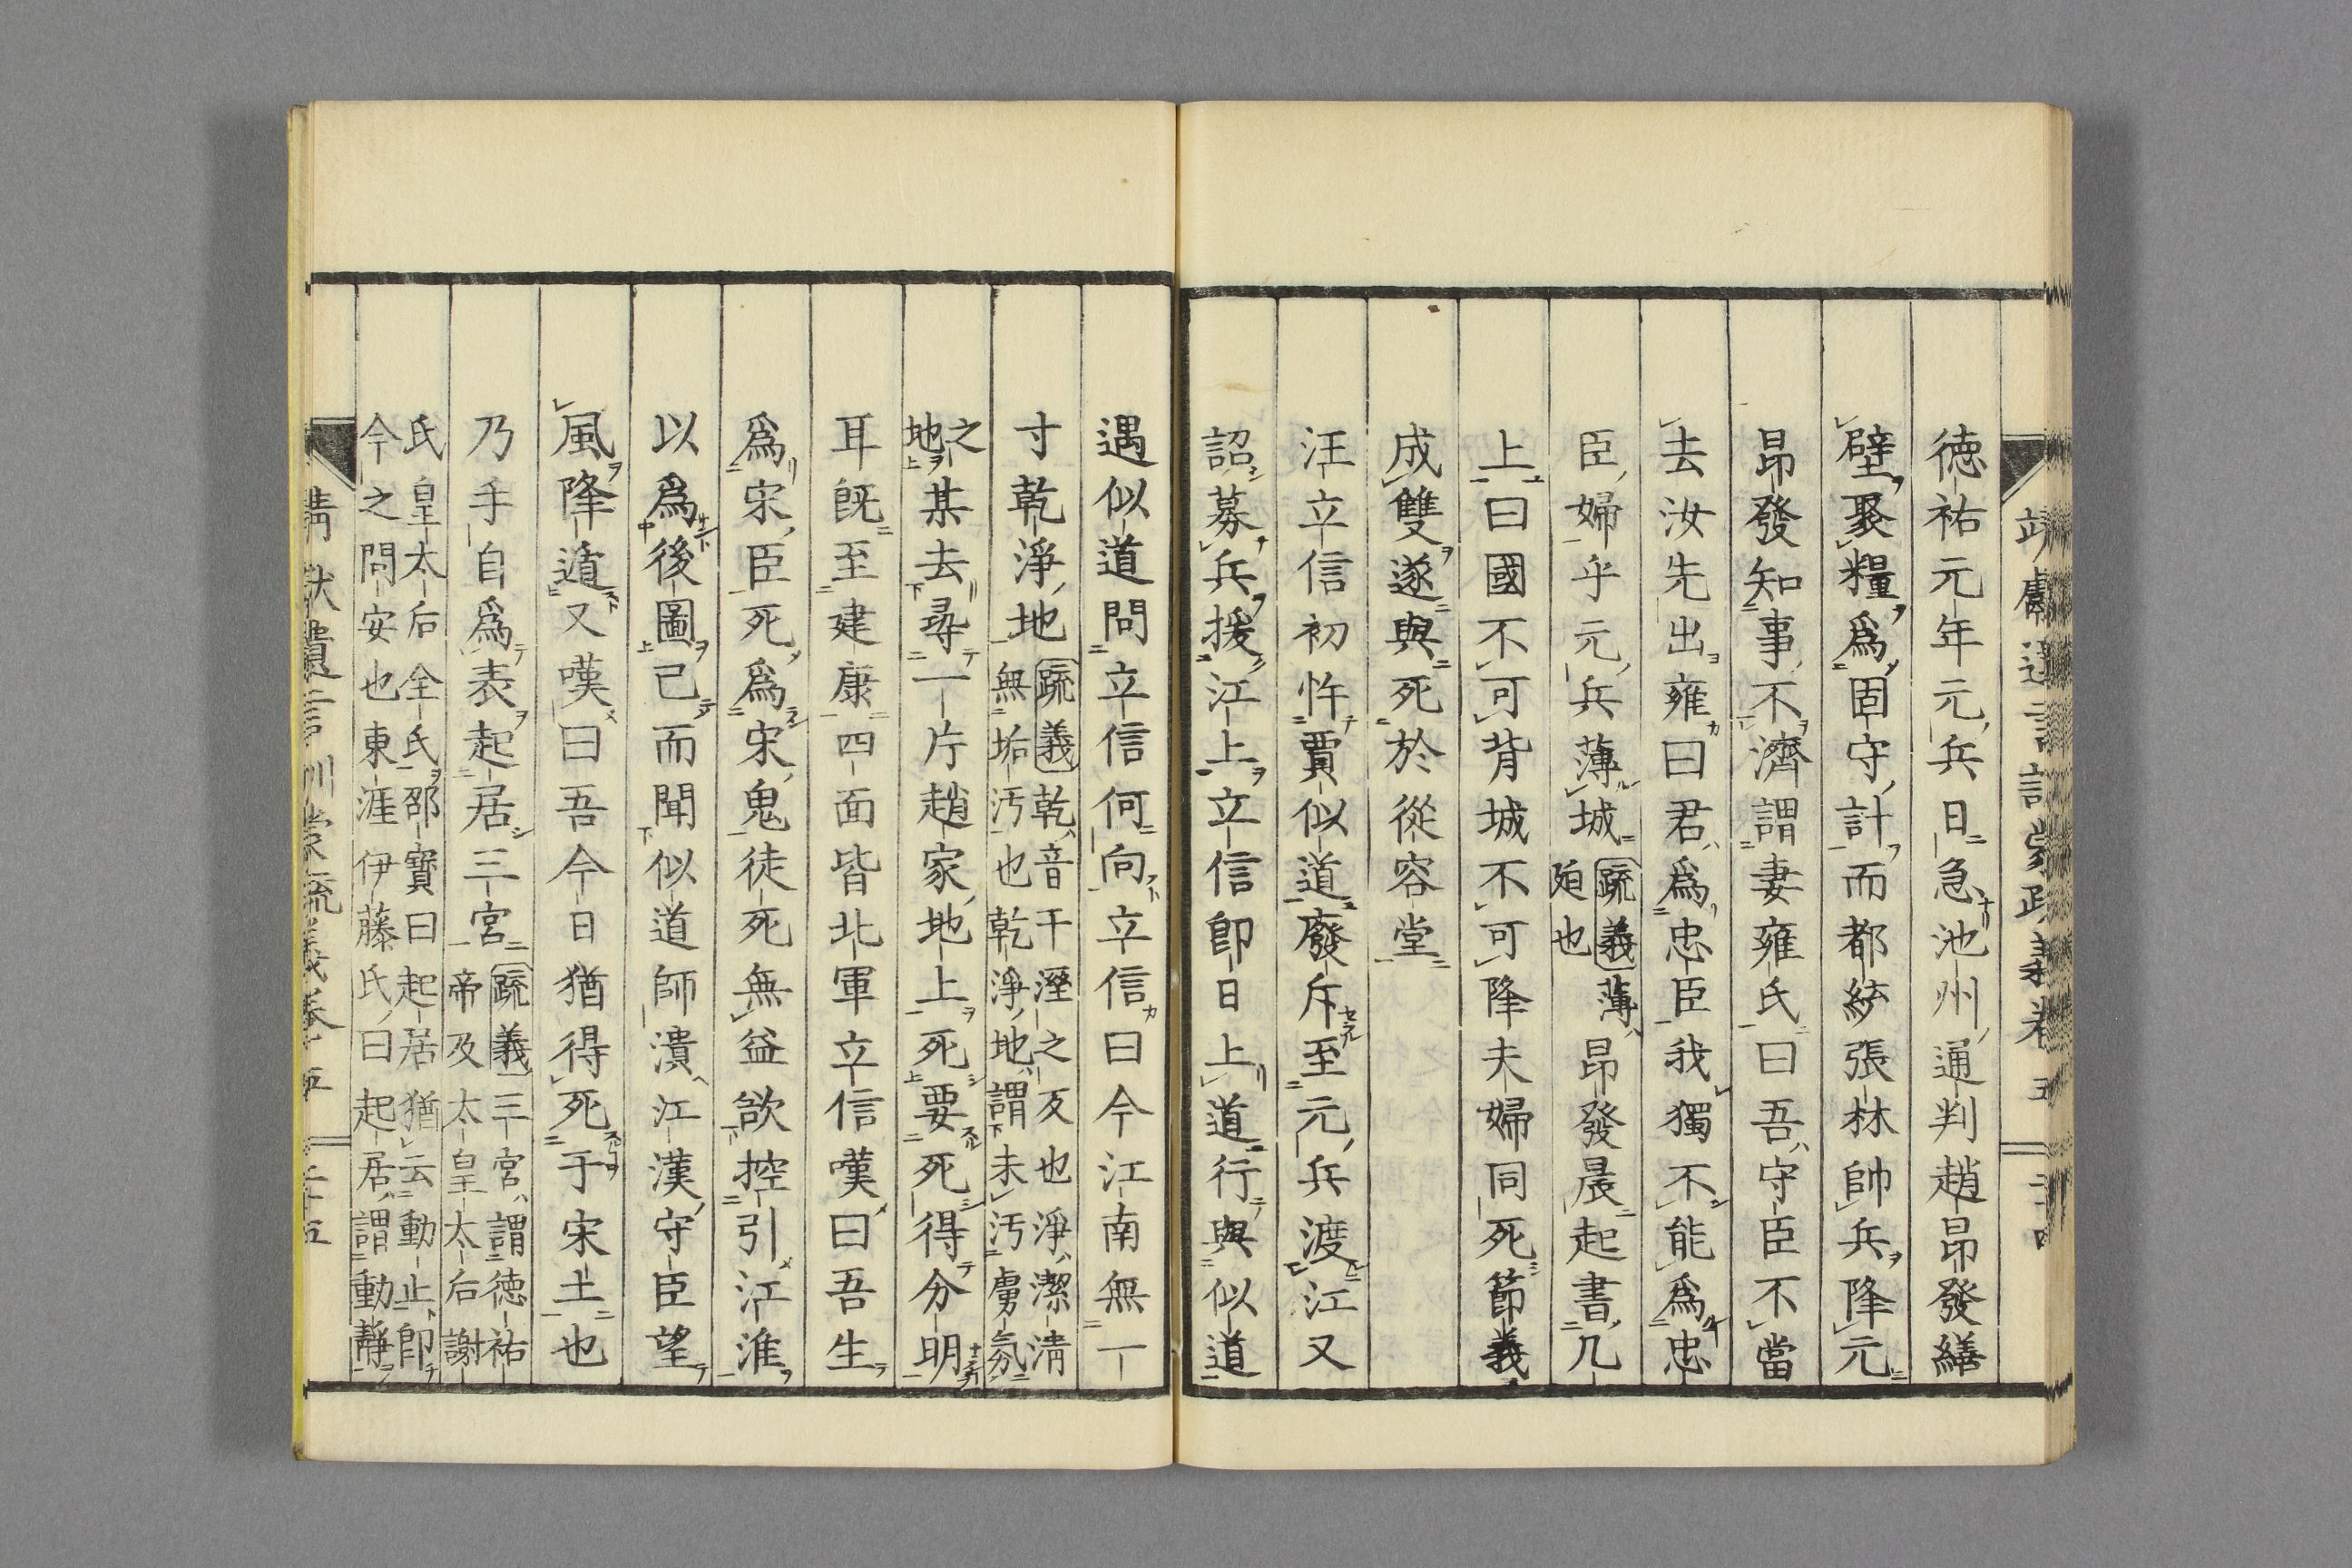 德祐元年元兵日急池州通判趙昂發繕
壁聚糧爲固守計而都統張林帥兵降元
昂發知事不濟謂妻雍氏曰吾守臣不當
去汝先出雍曰君爲忠臣我獨不能爲忠
臣婦乎元兵薄城
疏義薄
迫也
昂發晨起書几
上曰國不可背城不可降夫婦同死節義
成雙遂與死於從容堂
汪立信初忤賈似道廢斥至元兵渡江又
詔募兵援江上立信卽日上道行與似道
遇似道問立信何向立信曰今江南無一
寸乾淨地
疏義乾音干溼之反也淨潔清
無垢汚也乾淨地謂未汚虜氛
之
地
某去尋一片趙家地上死要死得分明
耳旣至建康四面皆北軍立信嘆曰吾生
爲宋臣死爲宋鬼徒死無益欲控引江淮
以爲後圖已而聞似道師潰江漢守臣望
風降遁又嘆曰吾今日猶得死于宋土也
乃手自爲表起居三宮
疏義三宮謂德祐
帝及太皇太后謝
氏皇太后全氏邵寶曰起居猶云動止卽
今之問安也東涯伊藤氏曰起居謂動靜
靖獻遺言訓蒙疏義卷十五